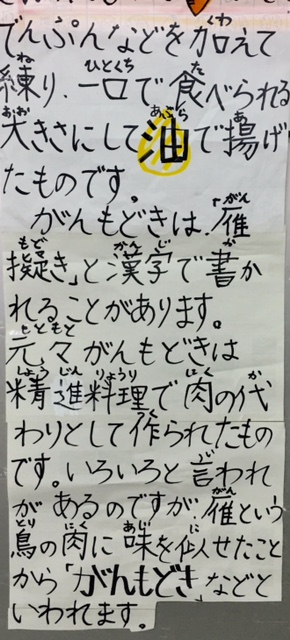 でんぷんなどを加えて
練り、一口で食べられる
大きさにして油で揚げ
たものです。
がんもどきは、「雁
擬き」と漢字で書か
れることがあります。
元々がんもどきは
精進料理で肉の代
わりとして作られたもの
です。いろいろと言われ
があるのですが、雁という
鳥の肉に味を似せたこと
から「がんもどき」などと
いわれます。